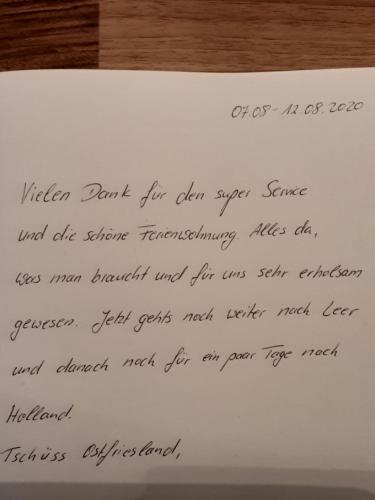 07.08 - 12.08.2020
Vielen Dank für den super Service
und die schöne Ferienwohnung. Alles da,
was man braucht und für uns sehr erholsam
gewesen. Jetzt gehts noch weiter nach Leer
und danach noch für ein paar Tage nach
Holland.
Tschüss Ostfriesland,